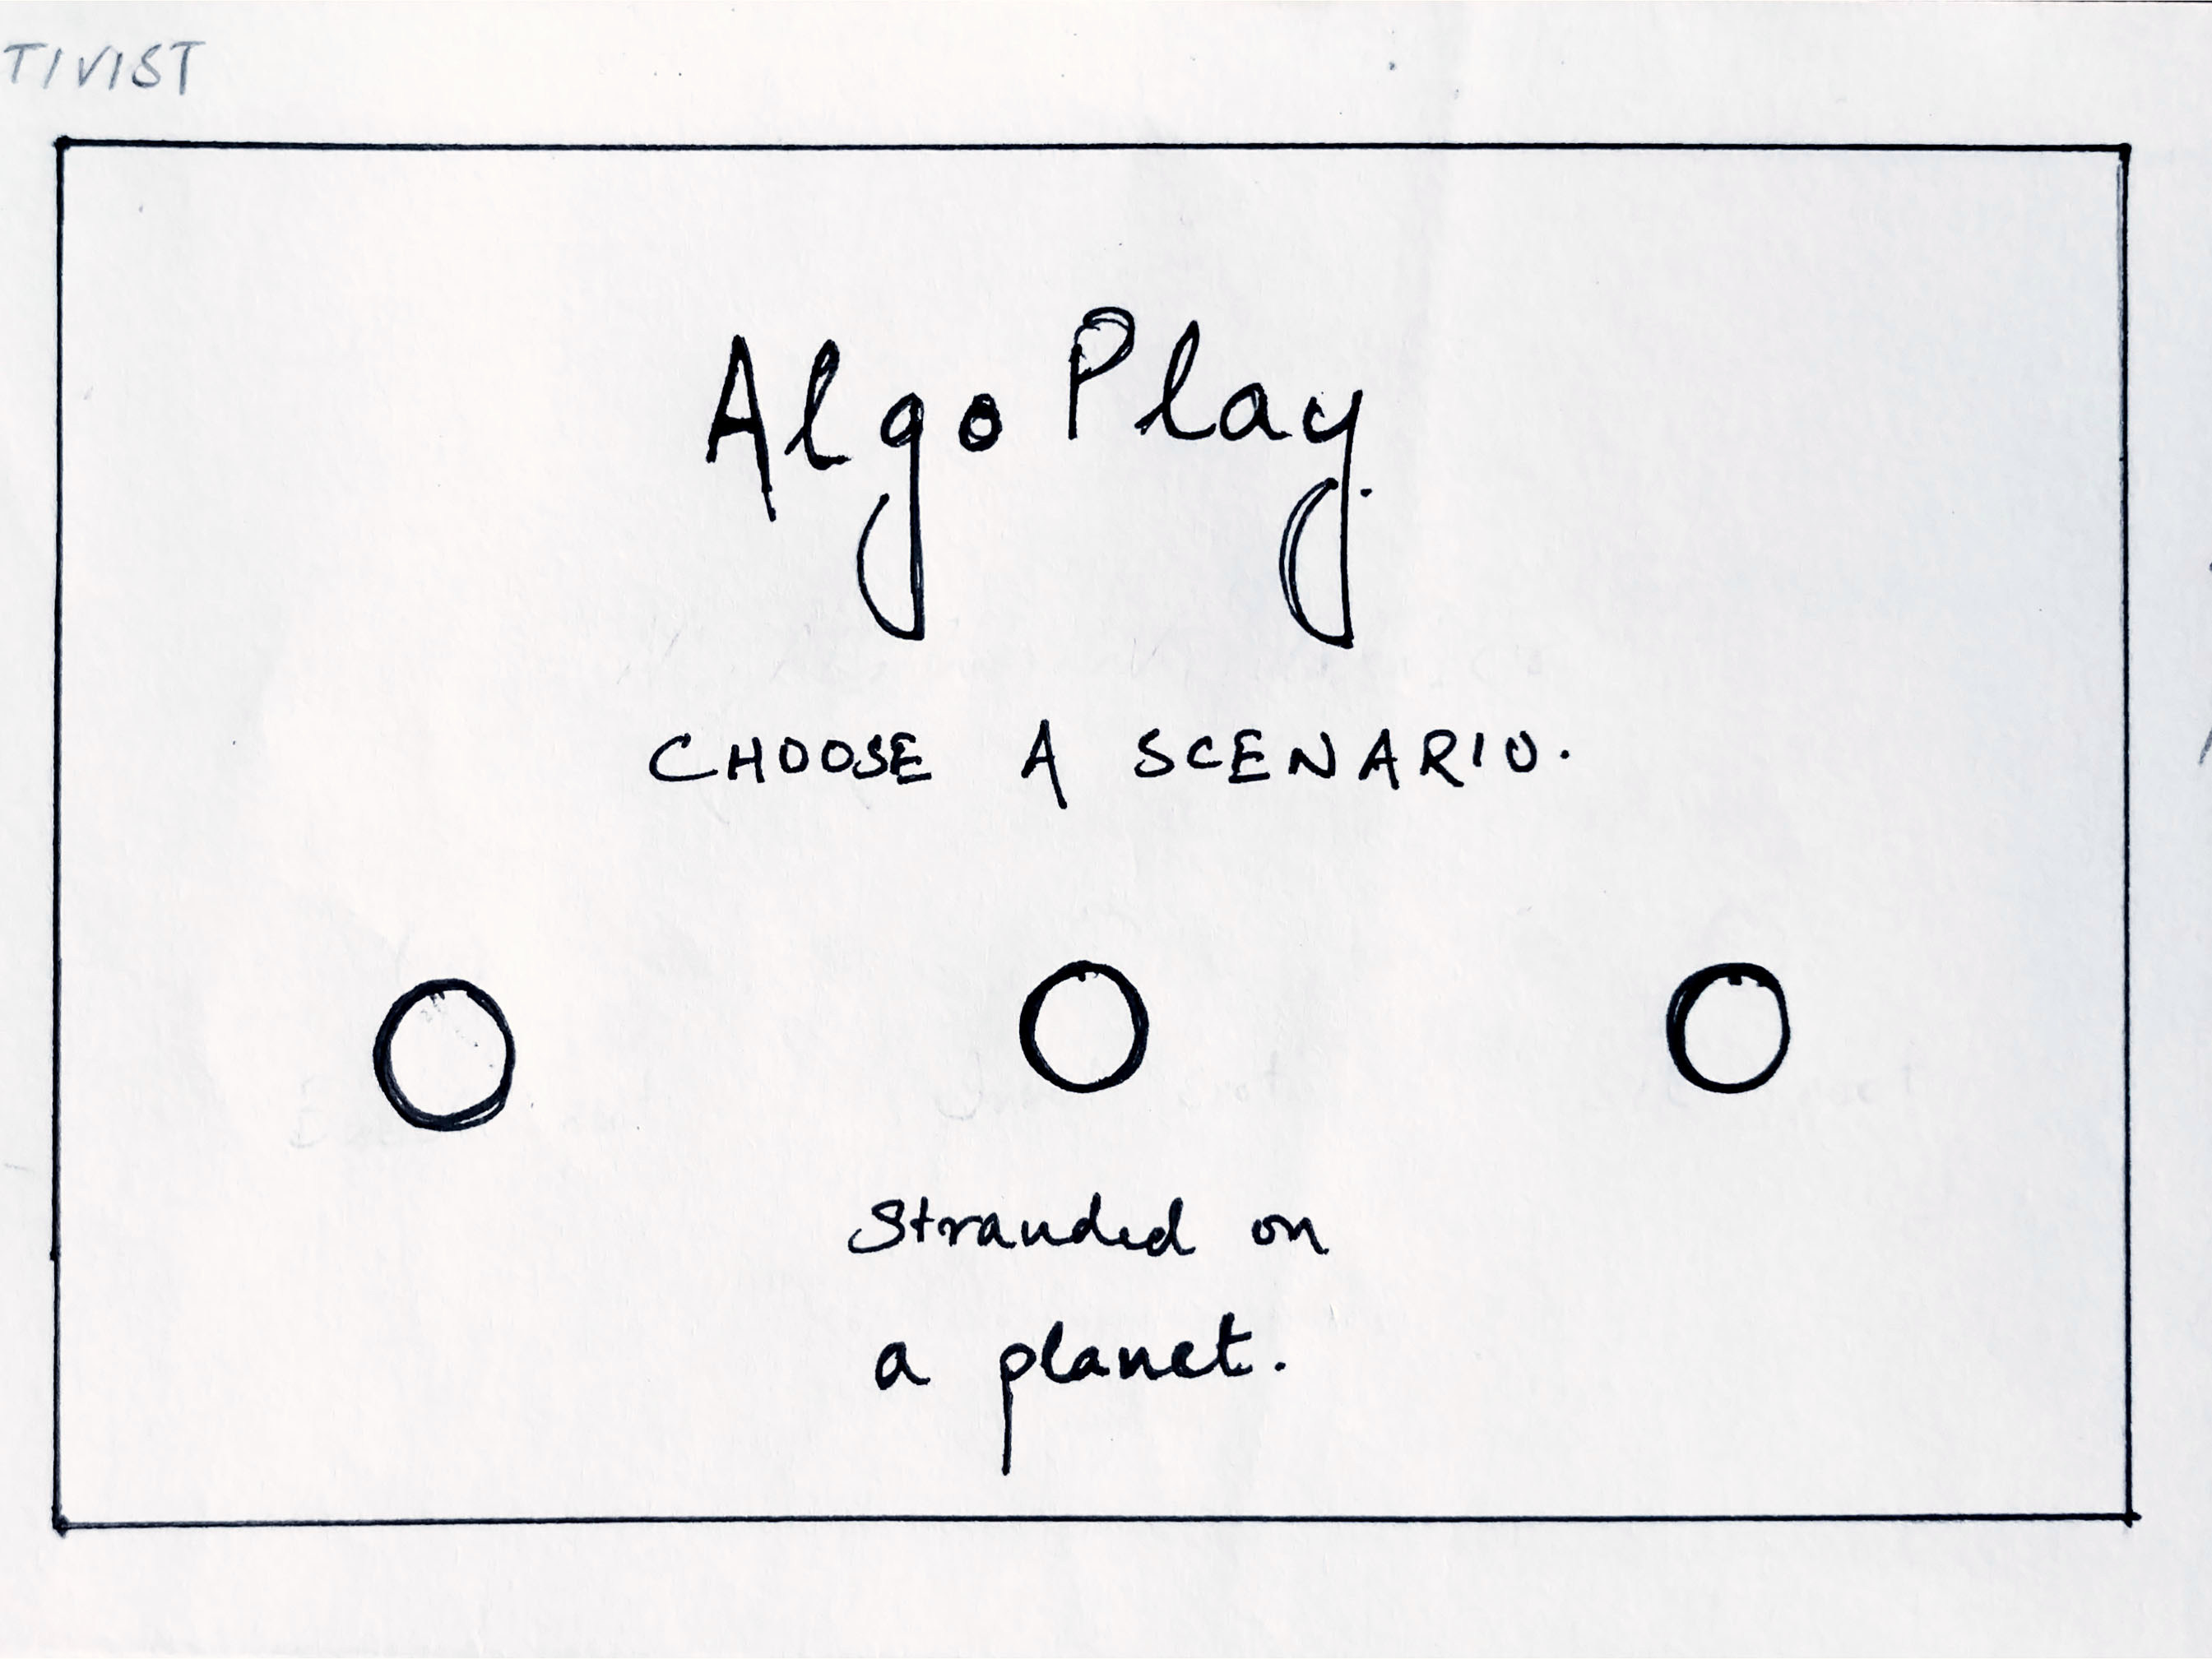 TIVIST
Algo Play.
CHOOSE A SCENARIO.
Stranded on
a planet.